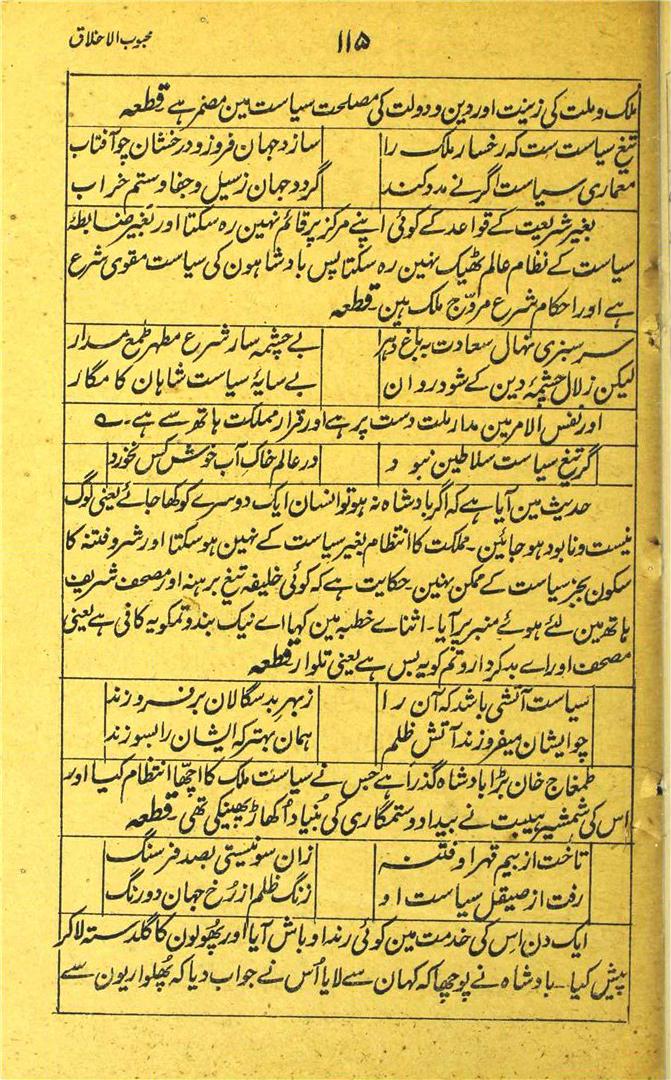 محبوب الاخلاق
۱۱۵
ملک و ملت کی زینت اور دین و دولت کی مصلحت سیاست مین مضمر ہے قطعہ
تیغ سیاست ست کہ رخسار ملک را سازد جہان فروز و درخشان چو آفتاب
معماری سیاست اگر نے مدد کند گردد جہان ز سیل و جفا و ستم خراب
بغیر شریعت کے قواعد کے کوئی اپنے مرکز پر قائم نہین رہ سکتا اور بغیر ضابطۂ
سیاست کے نظام عالم ٹھیک نہین رہ سکتا پس بادشاہون کی سیاست مقوی شرع
ہے اور احکام شرع مروّج ملک ہین قطعہ
سرسبزی نہال سعادت بہ باغ دہر بے چشمہ سار شرع مطہر طمع مدار
لیکن زلال چشمۂ دین کے شود روان بے سایۂ سیاست شاہان کامگار
اور نفس الامر مین مدار ملت دست پر ہے اور قرار مملکت ہاتھ سے ہے۔ ؎
گر تیغ سیاست سلاطین نبود در عالم خاک آب خوش کس نخورد
حدیث مین آیا ہے کہ اگر بادشاہ نہ ہو تو انسان ایک دوسرے کو کھا جائے یعنی لوگ
نیست و نابود ہو جائین۔ مملکت کا انتظام بغیر سیاست کے نہین ہو سکتا اور شر و فتنہ کا
سکون بجز سیاست کے ممکن نہین حکایت ہے کہ کوئی خلیفہ تیغ برہنہ اور مصحف شریف
ہاتھ مین لئے ہوئے منبر پر آیا۔ اثناے خطبہ مین کہا اے نیک بندو تمکو یہ کافی ہے یعنی
مصحف اور اے بدکردارو تم کو یہ بس ہے یعنی تلوار قطعہ
سیاست آتشی باشد کہ آن را ز بہر بدسگالان بر فروزند
چو ایشان میفروزند آتش ظلم ہمان بہتر کہ ایشان را بسوزند
طمغاج خان بڑا بادشاہ گذرا ہے جس نے سیاست ملک کا اچھّا انتظام کیا اور
اس کی شمشیر ہیبت نے بیداد و ستمگاری کی بُنیاد اُکھاڑ پھینکی تھی قطعہ
تاخت از بیم قہر او فتنہ زان سو نیستی بصد فرسنگ
رفت از صیقل سیاست او زنگ ظلم از رُخ جہان دو رنگ
ایک دن اس کی خدمت مین کوئی رند اوباش آیا اور پھولون کا گلدستہ لا کر
پیش کیا۔ بادشاہ نے پوچھا کہ کہان سے لایا اُس نے جواب دیا کہ پھلواریون سے